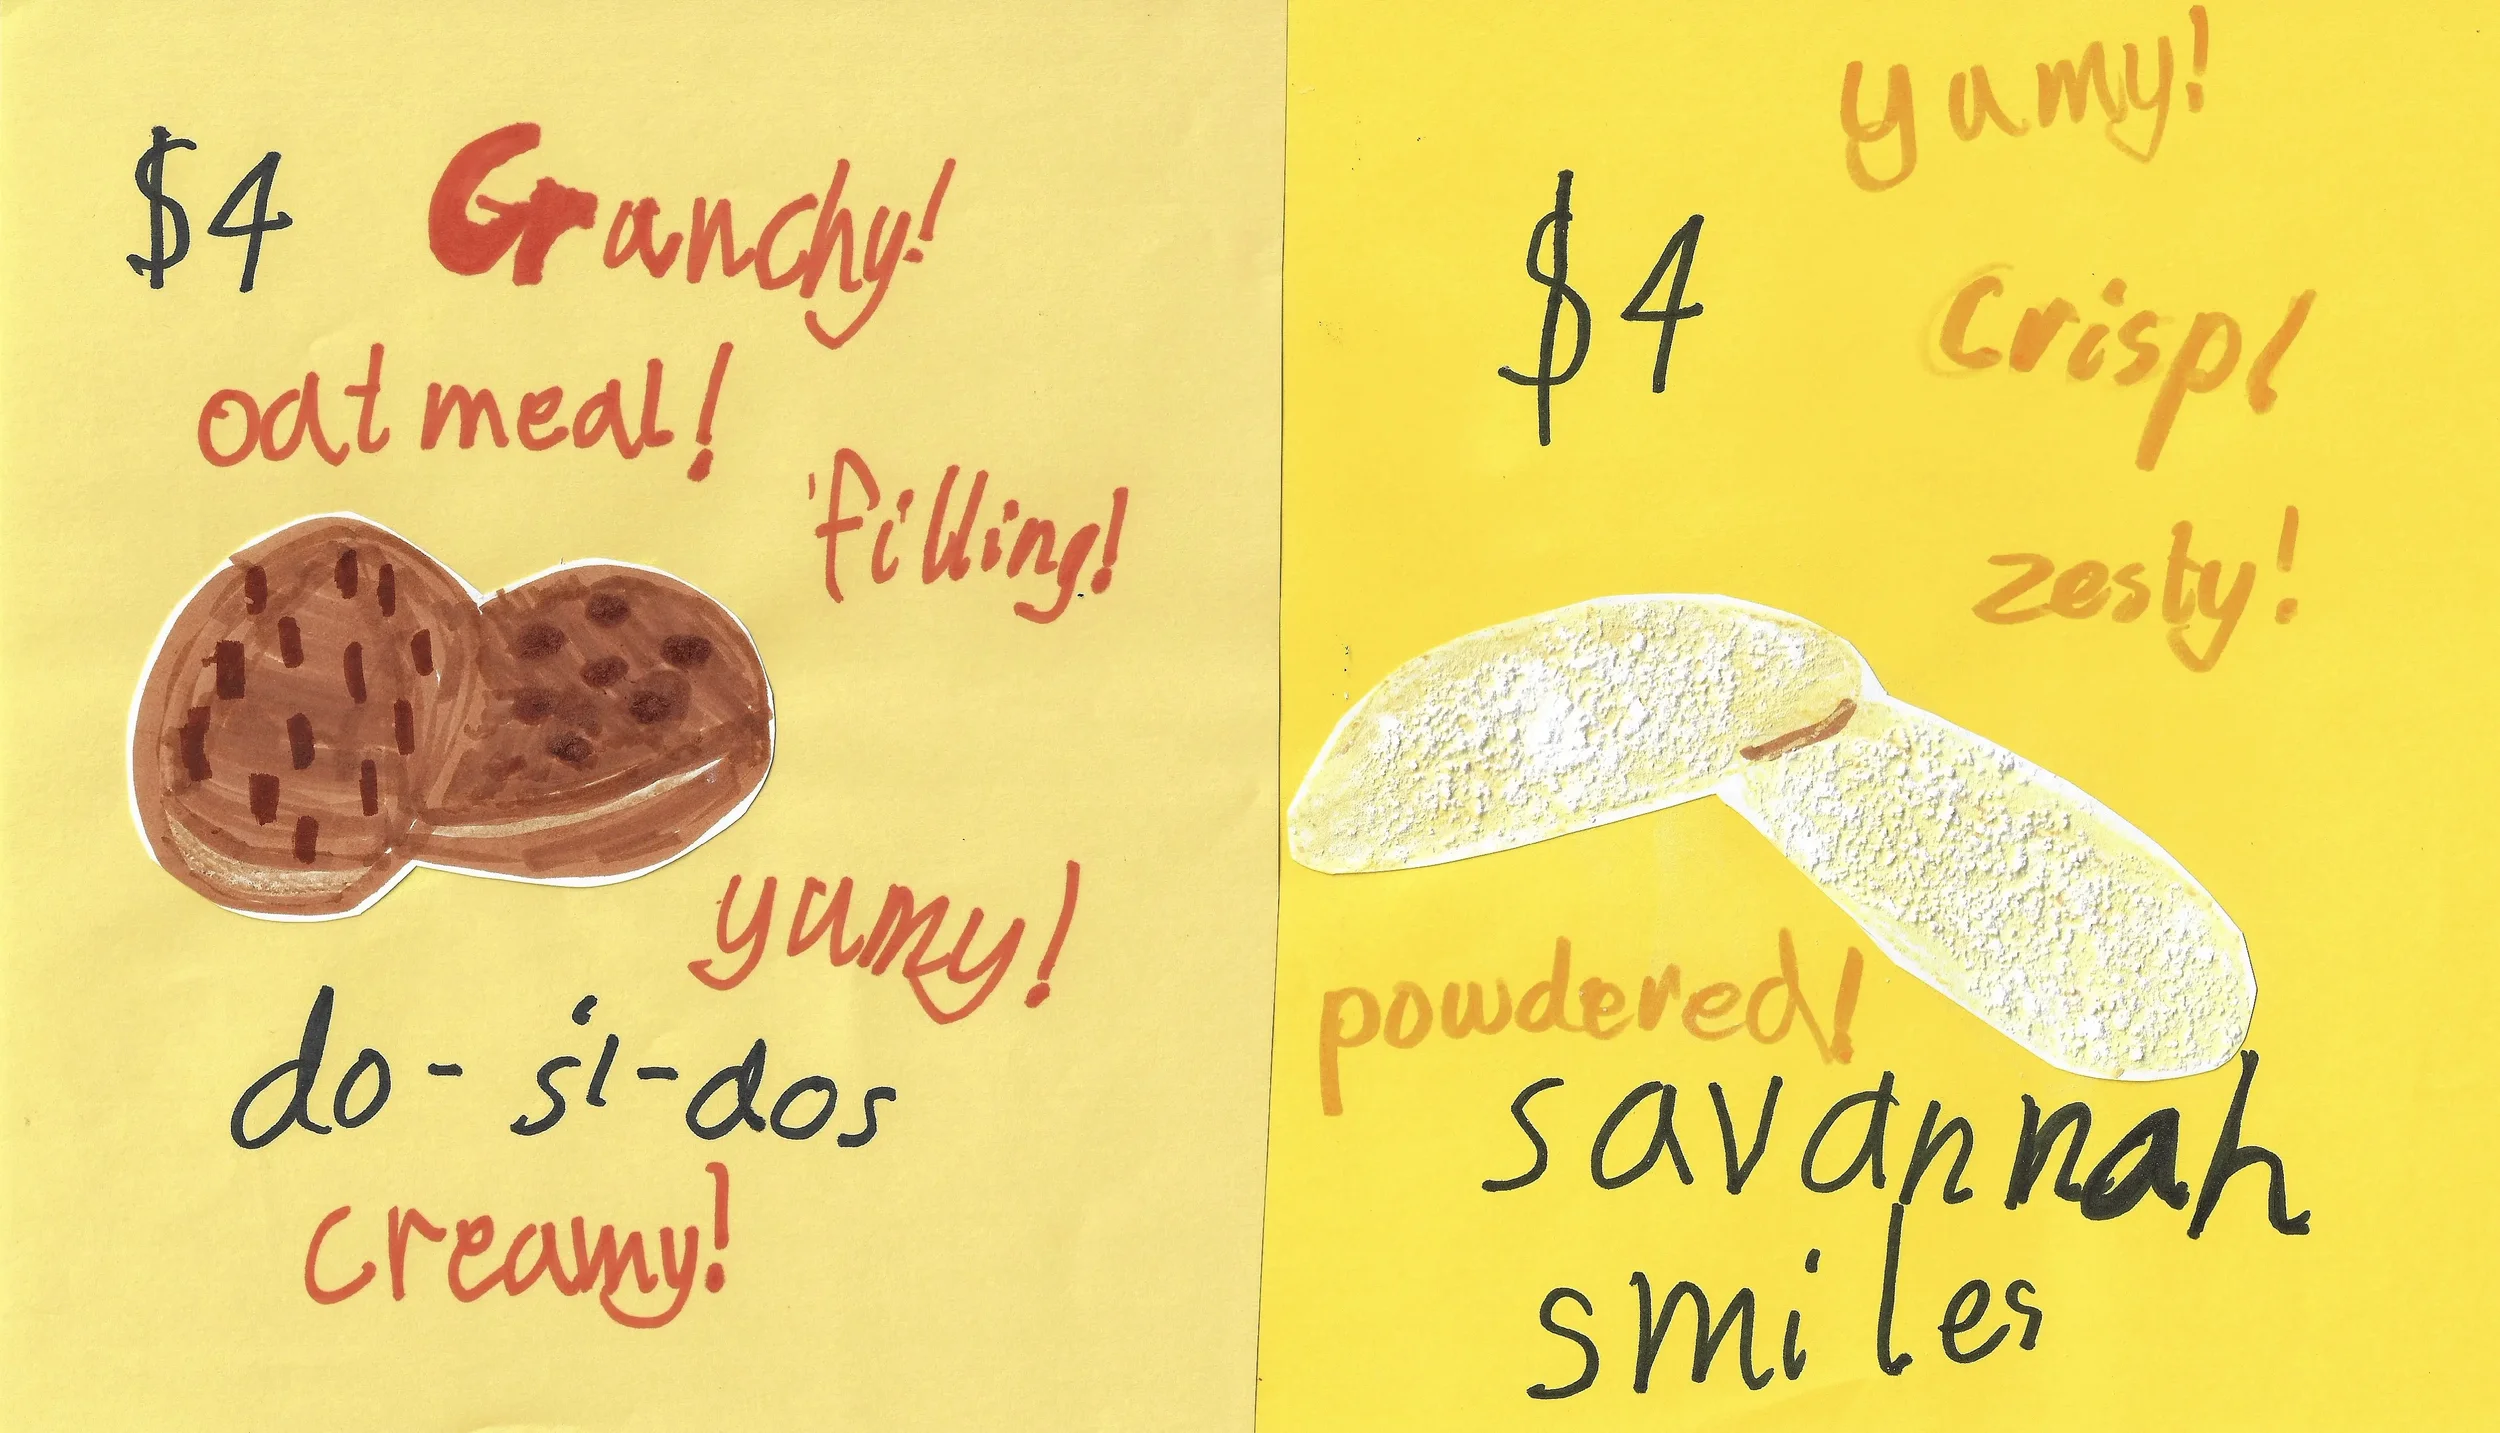 $4 Crunchy!
oatmeal!
filling!
yumy!
do-si-dos
creamy!
yumy!
$4
crisp!
zesty!
powdered!
savannah
smiles